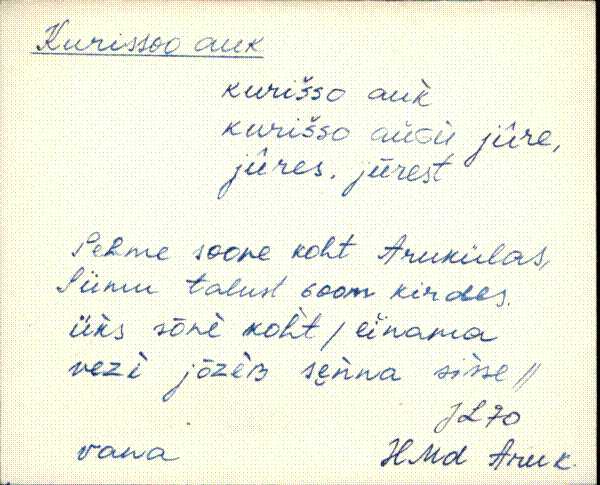 Kurissoo auk
kurišso auk̀
kurišso aùGù jûre,
jûres, jūrest
Pehme soone koht Arukülas,
Siimu talust 600m kirdes.
ük̀s sōnè koh̀t / eìnama
vezì jōzèB sèǹna sisse //
JL70
vana HMd Aruk.